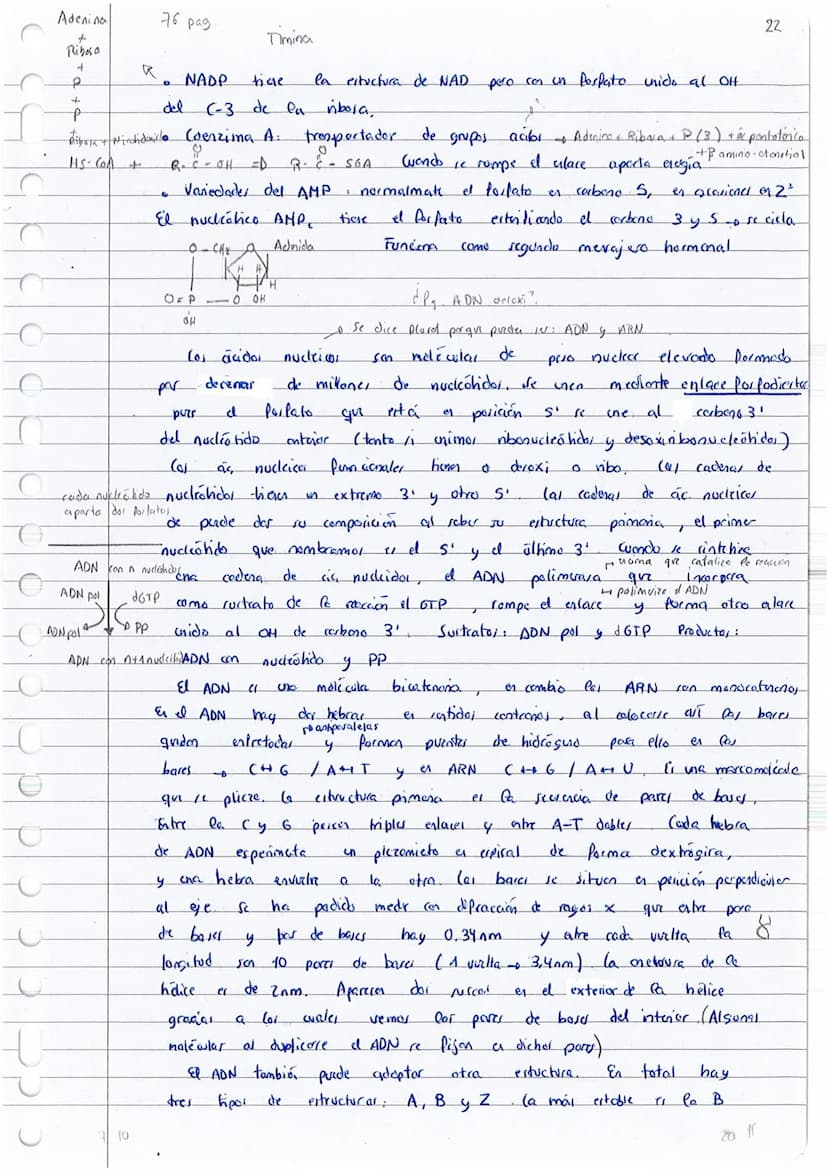 Adenina
+
Ribosa
+
P
+
P
76 pag
Timina
22
• NADP tiene la estructura de NAD pero con un fosfato unido al OH
del C-3 de la ribosa.
• Coenzima A: transportador de grupos acilos → Adenina + Ribosa + P (3) + ác pantoténico
+ β amino-etanotiol
HS-CoA + R-C-OH => R-C-SCoA Cuando se rompe el enlace aporta energía
O O
• Variedades del AMP: normalmente el fosfato en carbono 5, en ocasiones en 2'
El nucleótico AMPc tiene el fosfato esterificando el carbono 3 y 5 → se cicla
O - CH2 O Adenida Funciona como segundo mensajero hormonal
H H
H
O=P — O OH
OH
¿Pq. ADN desoxi?
→ Se dice plural porque pueden ser: ADN y ARN
Los ácidos nucleicos son moléculas de peso nuclear elevado formado
por decenas de millones de nucleótidos. Se unen mediante enlace fosfodiester
pues el fosfato que está en posición 5' se une al carbono 3'
del nucleótido anterior (tanto si unimos ribonucleótidos y desoxirribonucleótidos)
Los ác. nucleicos funcionales tienen o desoxi o ribo. Las cadenas de
nucleótidos tienen un extremo 3' y otro 5'. Las cadenas de ác. nucleicos
cada nucleótido
aporta dos fosfatos
se puede dar su composición al saber su estructura primaria, el primer
nucleótido que nombramos es el 5' y el último 3'. Cuando se sintetiza
→ enzima que cataliza la reacción
una cadena de ác. nucleicos, el ADN polimerasa que incorpora
↳ polimeriza el ADN
como sustrato de la reacción el GTP, rompe el enlace y forma otro enlace
unido al OH de carbono 3'. Sustratos: ADN pol y dGTP Productos:
ADN con nucleótido y PP
ADN con n nucleótidos
ADN pol dGTP
ADN pol PP
ADN con n+1 nucleótidos
El ADN es una molécula bicatenaria, en cambio los ARN son monocatenarios
En el ADN hay dos hebras en sentidos contrarios, al colocarse así las bases
→ antiparalelas
quedan entretodas y forman puentes de hidrógeno para ello en las
bases → C↔G / A↔T y en ARN C↔G / A↔U. Es una macromolécula
que se pliega. La estructura primaria es la secuencia de pares de bases.
Entre la C y G parecen triples enlaces y entre A-T dobles. Cada hebra
de ADN experimenta un plegamiento en espiral de forma dextrógira,
y una hebra envuelve a la otra. Las bases se sitúan en posición perpendicular
al eje. Se ha podido medir con difracción de rayos x que entre para
de bases y par de bases hay 0.34nm y entre cada vuelta la
longitud son 10 pares de bases (1 vuelta → 3,4nm). La anchura de la
hélice es de 2nm. Aparecen dos surcos en el exterior de la hélice
gracias a los cuales vemos los pares de bases del interior. (Algunas
moléculas al duplicarse el ADN se fijan en dichos pares)
El ADN también puede adoptar otra estructura. En total hay
tres tipos de estructuras: A, B y Z. La más estable es la B